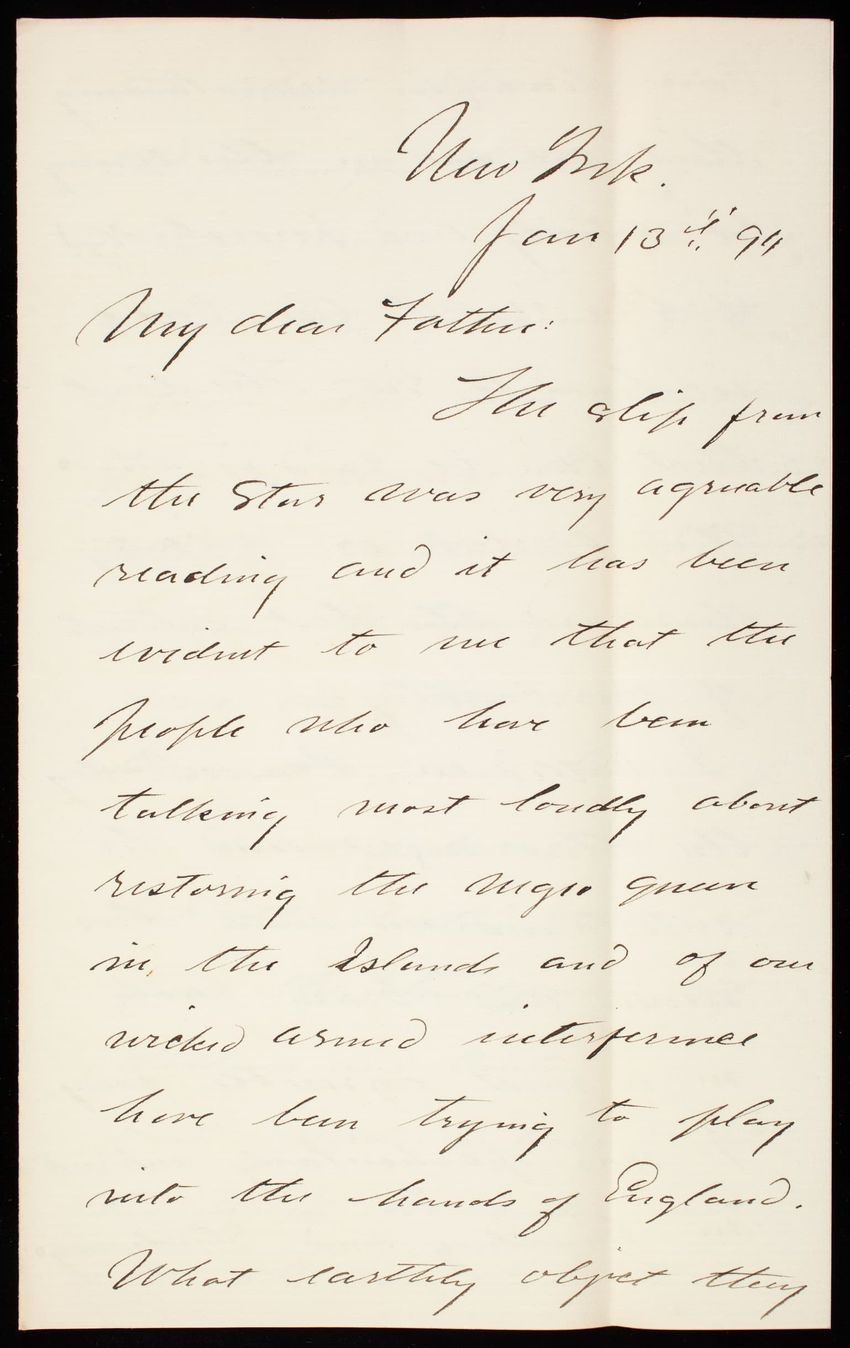 New York.
Jan 13th 94
My dear Father:
The slip from
the Star was very agreeable
reading and it has been
evident to me that the
people who have been
talking most loudly about
restoring the negro queen
in the Islands and of our
wicked armed interference
have been trying to play
into the hands of England.
What earthly object they